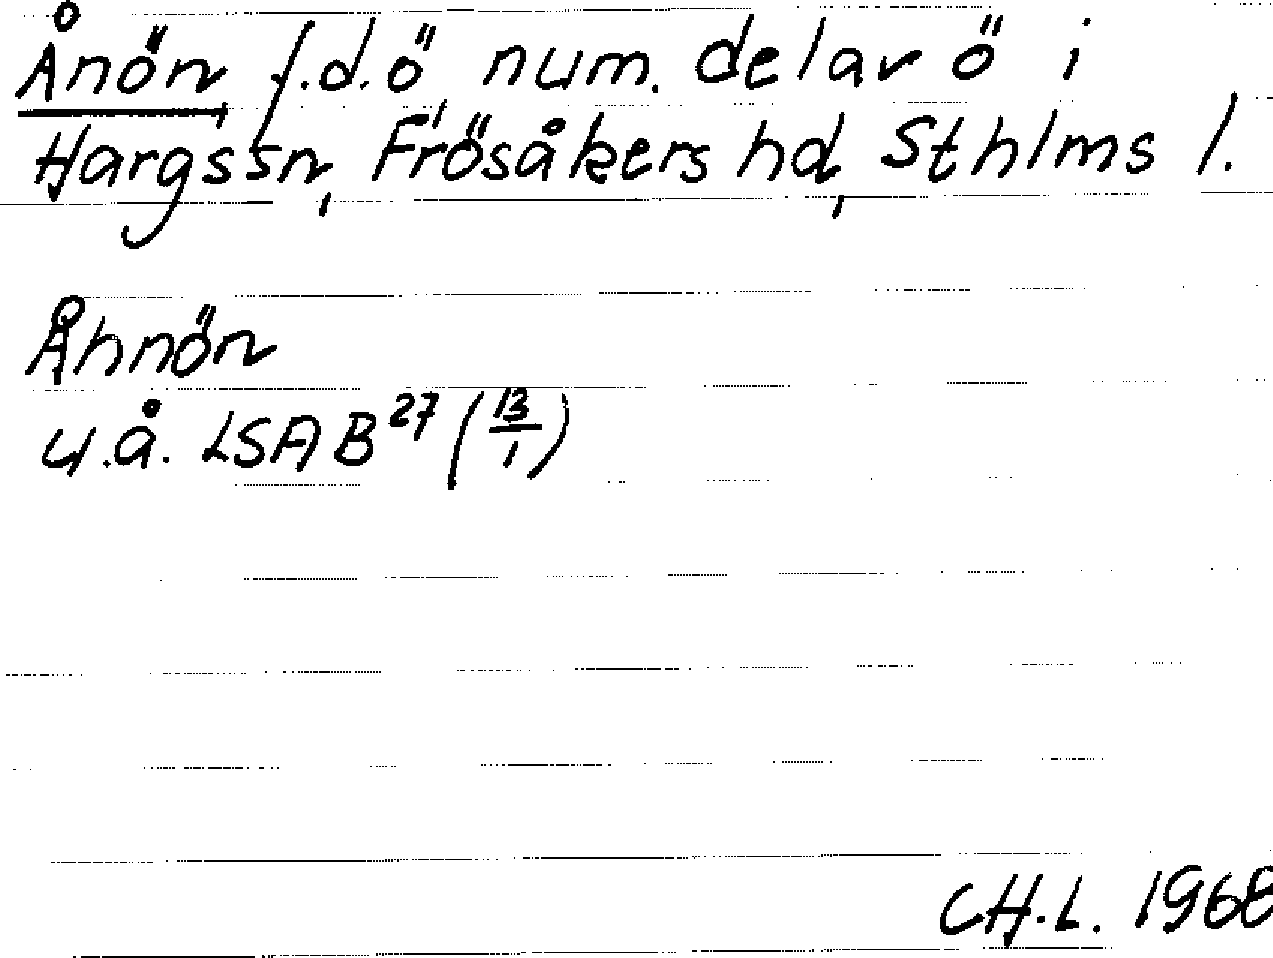 Ånön, f.d. ö num. del av ö i
Hargs sn, Frösåkers hd, Sthlms l.
Åhnön
u.å. LSA B 27 (13/1)
CH.L. 1968